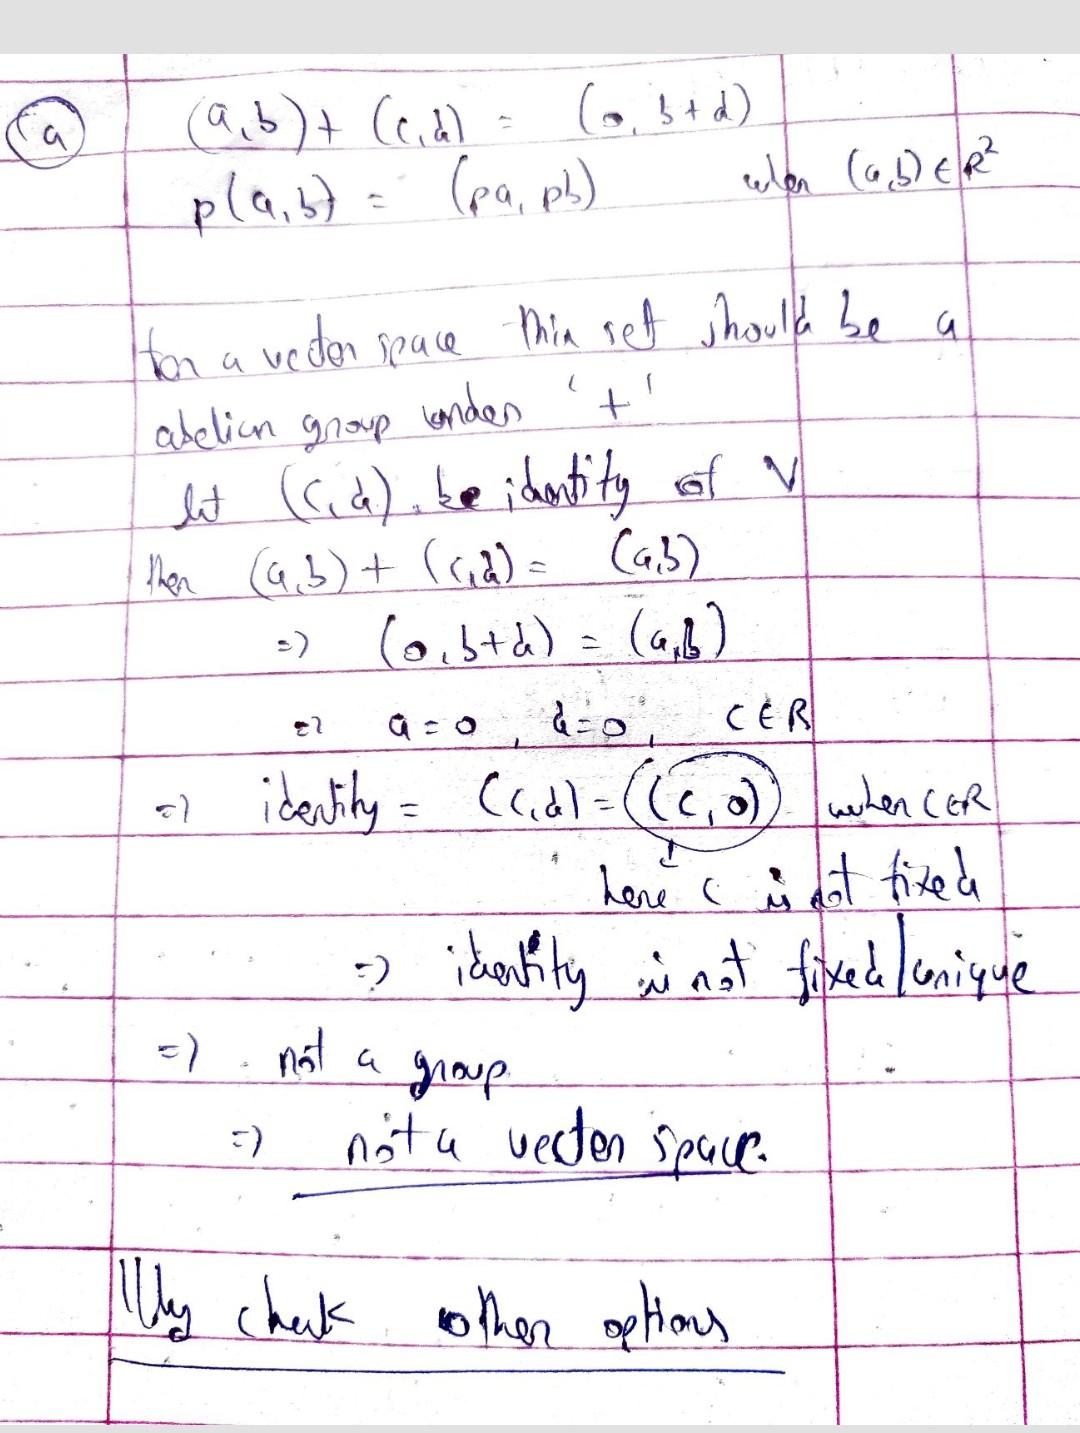 (a) (a,b) + (c,d) = (0, b+d)
p(a,b) = (pa, pb) when (a,b) ∈ R²
for a vector space this set should be a
abelian group under '+'
let (c,d) be identity of V
then (a,b) + (c,d) = (a,b)
=> (0, b+d) = (a,b)
=> a=0, d=0, c∈R
=> identity = (c,d) = (c,0) when c∈R
↓
here c is not fixed
=> identity is not fixed/unique
=> not a group
=> not a vector space.
lllly check other options